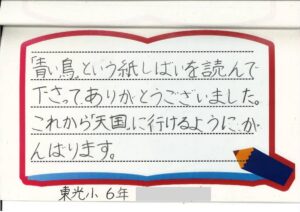 「青い鳥」という紙しばいを読んで
下さってありがとうございました。
これから「天国」に行けるように、が
んばります。
東光小 6年